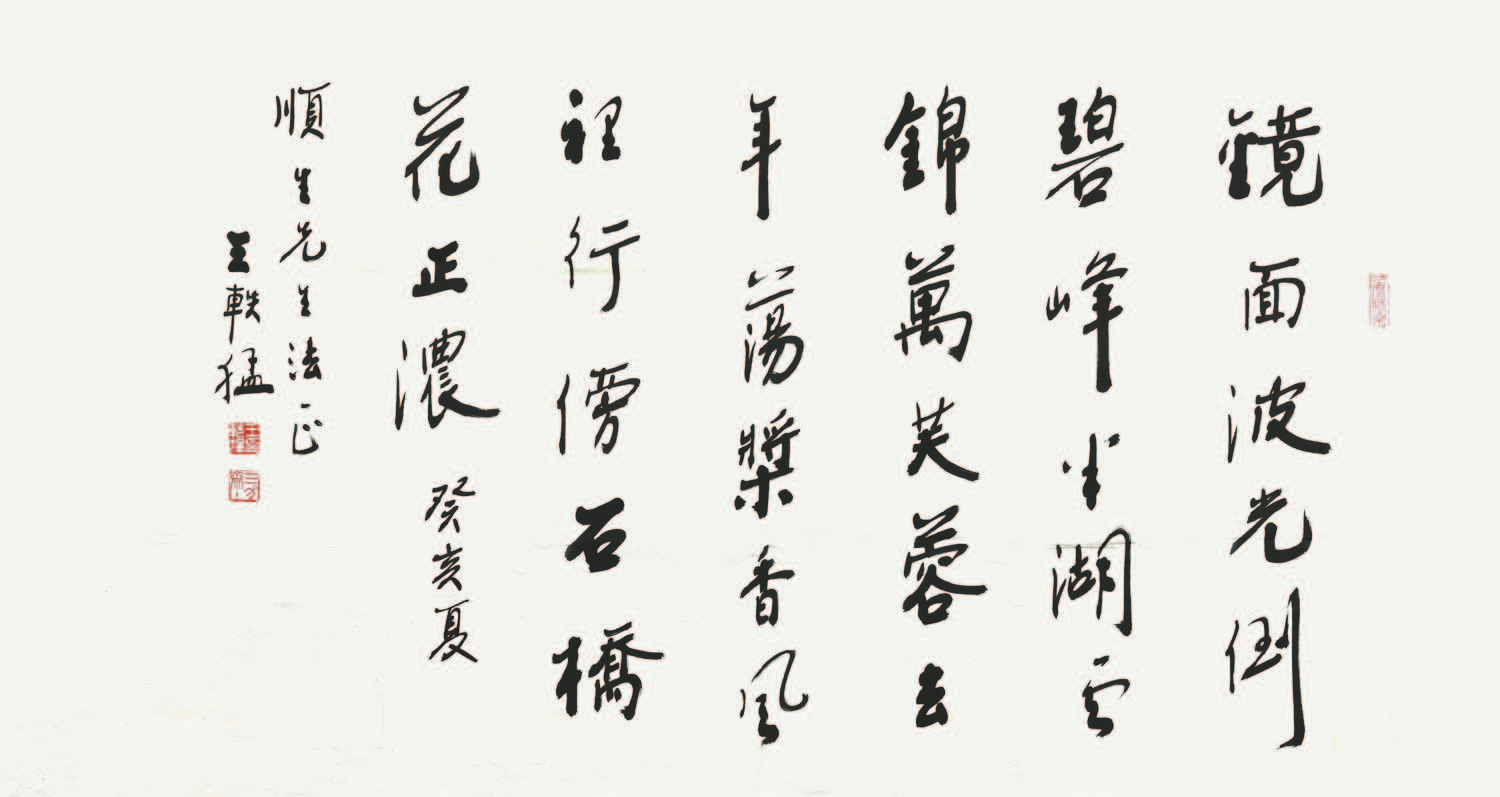 鏡面波光倒
碧峰半湖雲
錦萬芙蓉去
年蕩槳香風
裡行傍石橋
花正濃癸亥夏
順生先生法正
王軼猛